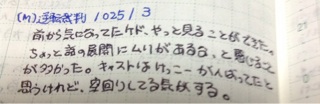 (M)逆転裁判 1025/3
前から気になってたケド、やっと見ることができた。
ちょっと話の展開にムリがあるな、と感じること
が多かった。キャストはけっこーがんばってたと
思うけれど、空回りしてる気がする。